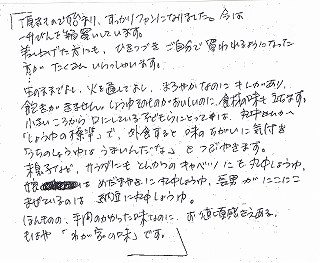 頂きもので始まり、すっかりファンになりました。今は
一升びんで毎回買っています。
差し上げた方にも、ひきつづきご自分で買われるようになった
方が、たくさんいらっしゃいます。
生のままでよし、火を通してよし、まろやかなのにキレがあり、
飽きがきません。しょうゆそのものがおいしいのに、食材の味も立ちます。
小さいころから口にしている子どもらにとっては、丸中さんが
「しょうゆの標準」で、外食すると味のちがいに気付き
「うちのしょうゆはうまいんだな」とつぶやきます。
親子など、サラダにもとんかつのキャベツにも丸中しょうゆ、
娘は めだまやきに丸中しょうゆ、長男がにこにこ
まぜているのは 納豆に丸中しょうゆ。
ほんものの、手間のかかった味なのに、お値頃感さえある、
もはや「わが家の味」です。